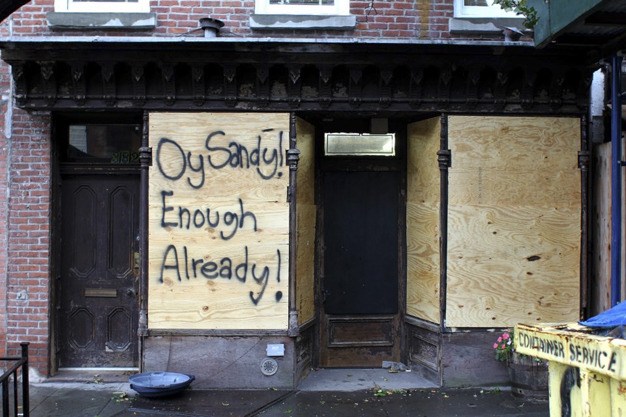 Oy Sandy!
Enough
Already!
CONTAINER SERVICE